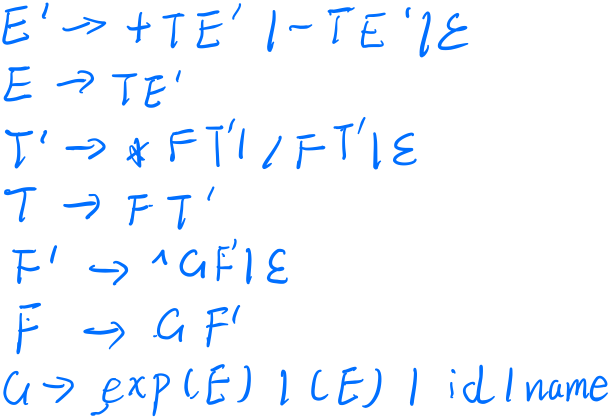 E' → +TE' | -TE' | ε
E → TE'
T' → *FT' | /FT' | ε
T → FT'
F' → ^GF' | ε
F → GF'
G → exp(E) | (E) | id | name